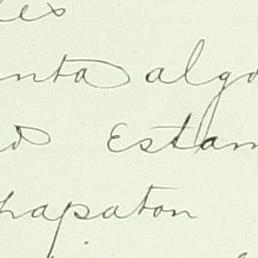 les
nta algo
Estam
hapaton